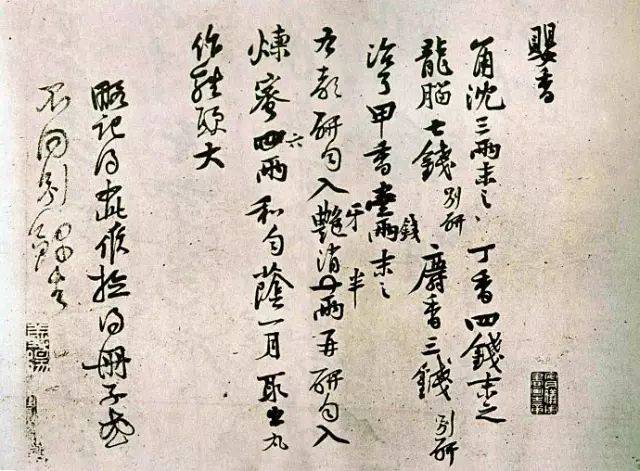 嬰香
角沈三兩末之丁香四錢末之
龍腦七錢別研麝香三錢別研
治了甲香壹兩錢末之
右都研勻入艷牙消半兩再研勻入
煉蜜四六兩和勻蔭一月取出丸
作雞頭大
略記得如此候檢得冊子或
不同別錄去